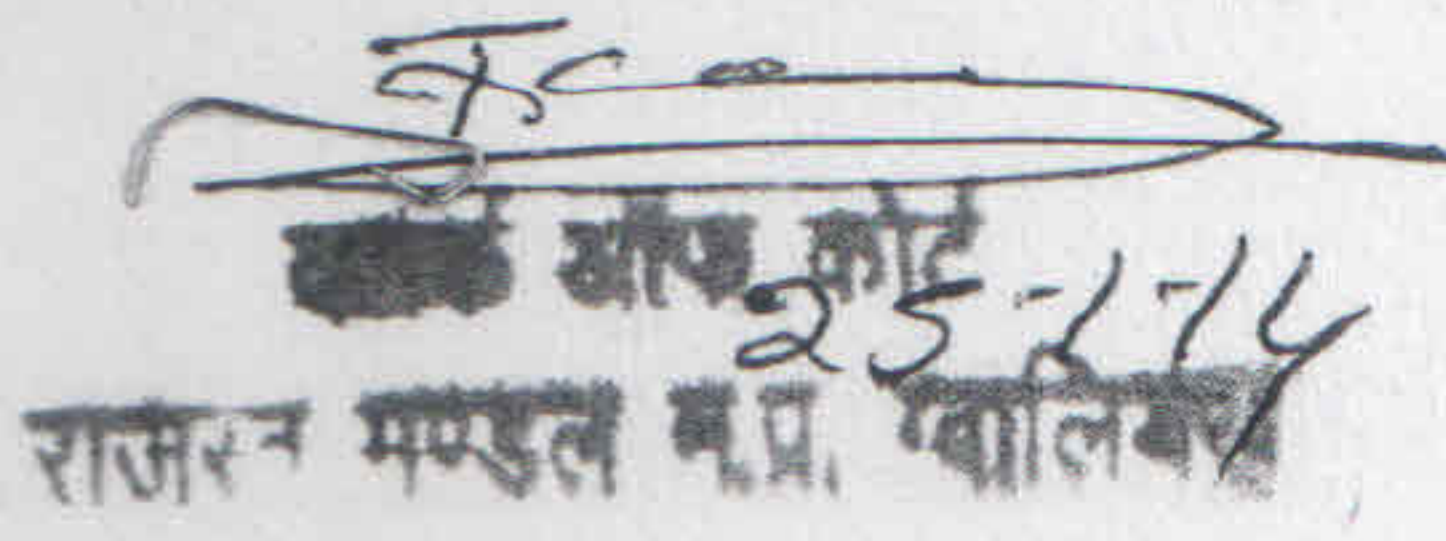 ऑफ कोर्ट
25-1-14
राजस्व मण्डल म.प्र. ग्वालियर